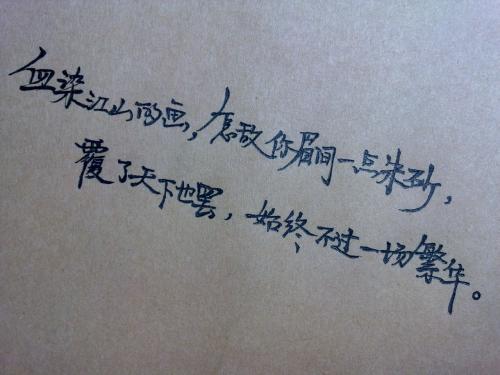 血染江山的画，怎敌你眉间一点朱砂，
覆了天下也罢，始终不过一场繁华。